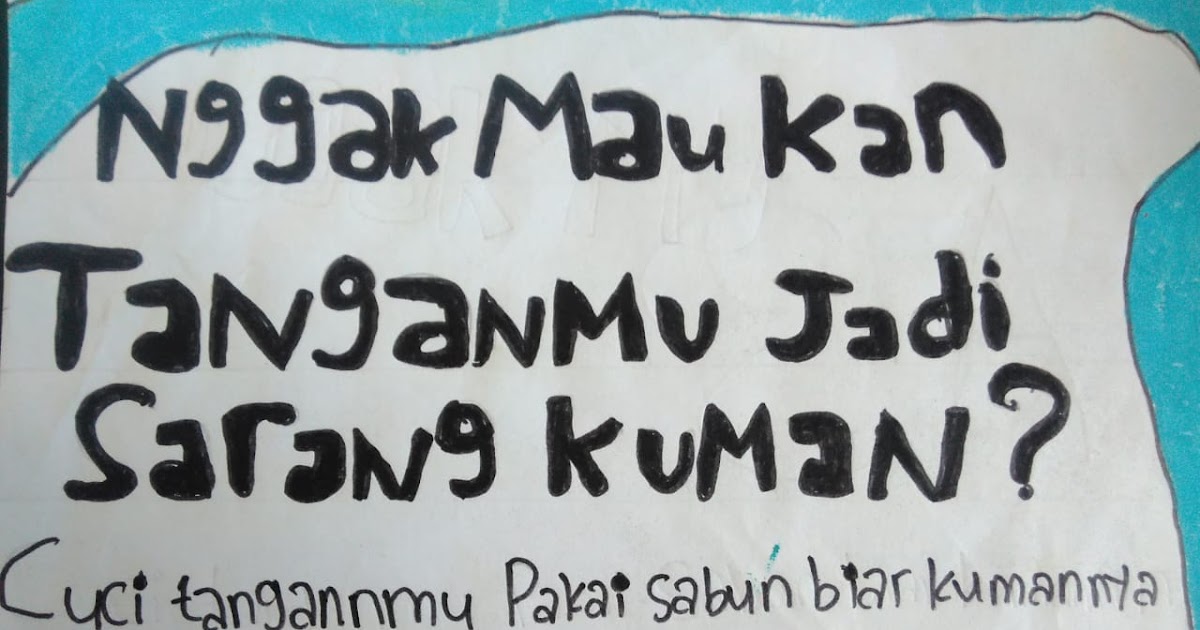 Nggak Mau Kan
Tanganmu Jadi
Sarang Kuman?
Cuci tangannmu Pakai sabun biar kumannya